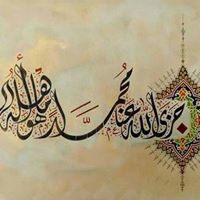 جزى الله عنا محمدا ما هو أهله